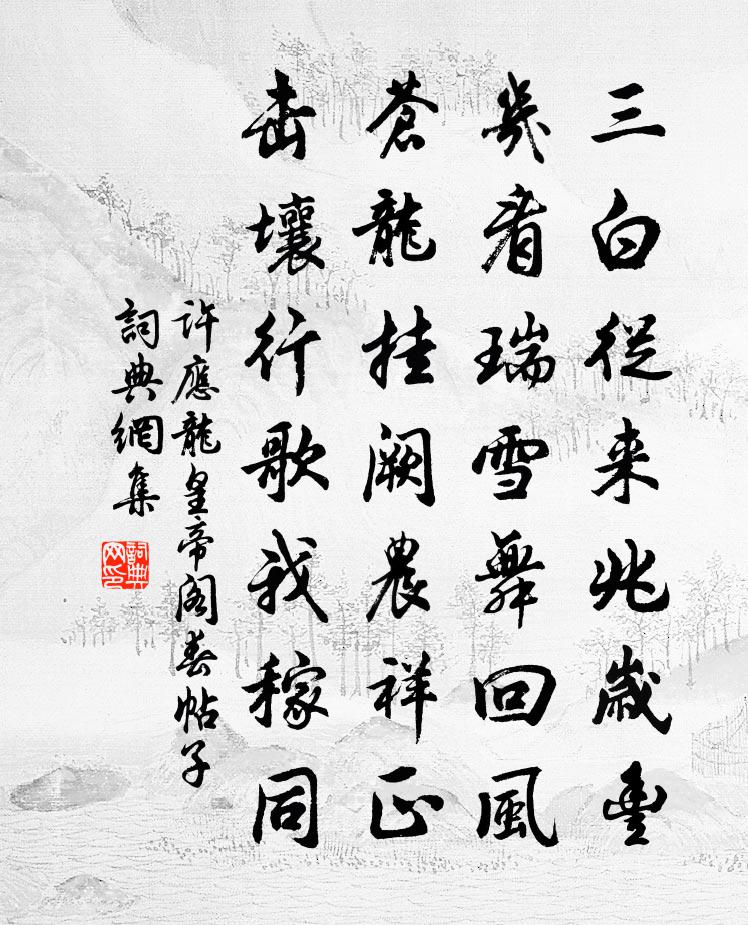 三白從来兆歲豊
幾看瑞雪舞回風
蒼龍挂闕農祥正
击壤行歌我稼同
許應龍皇帝閣春帖子
詞典網集
詞典網印